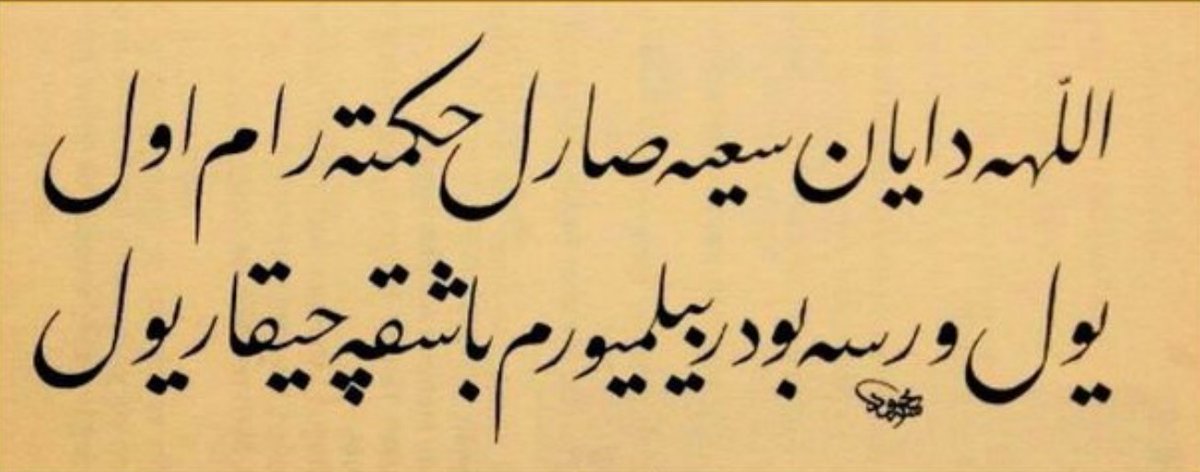 اللّٰهه دايان سعيه صارل حكمته رام اول
يول وارسه بودر بيلميورم باشقه چيقار يول